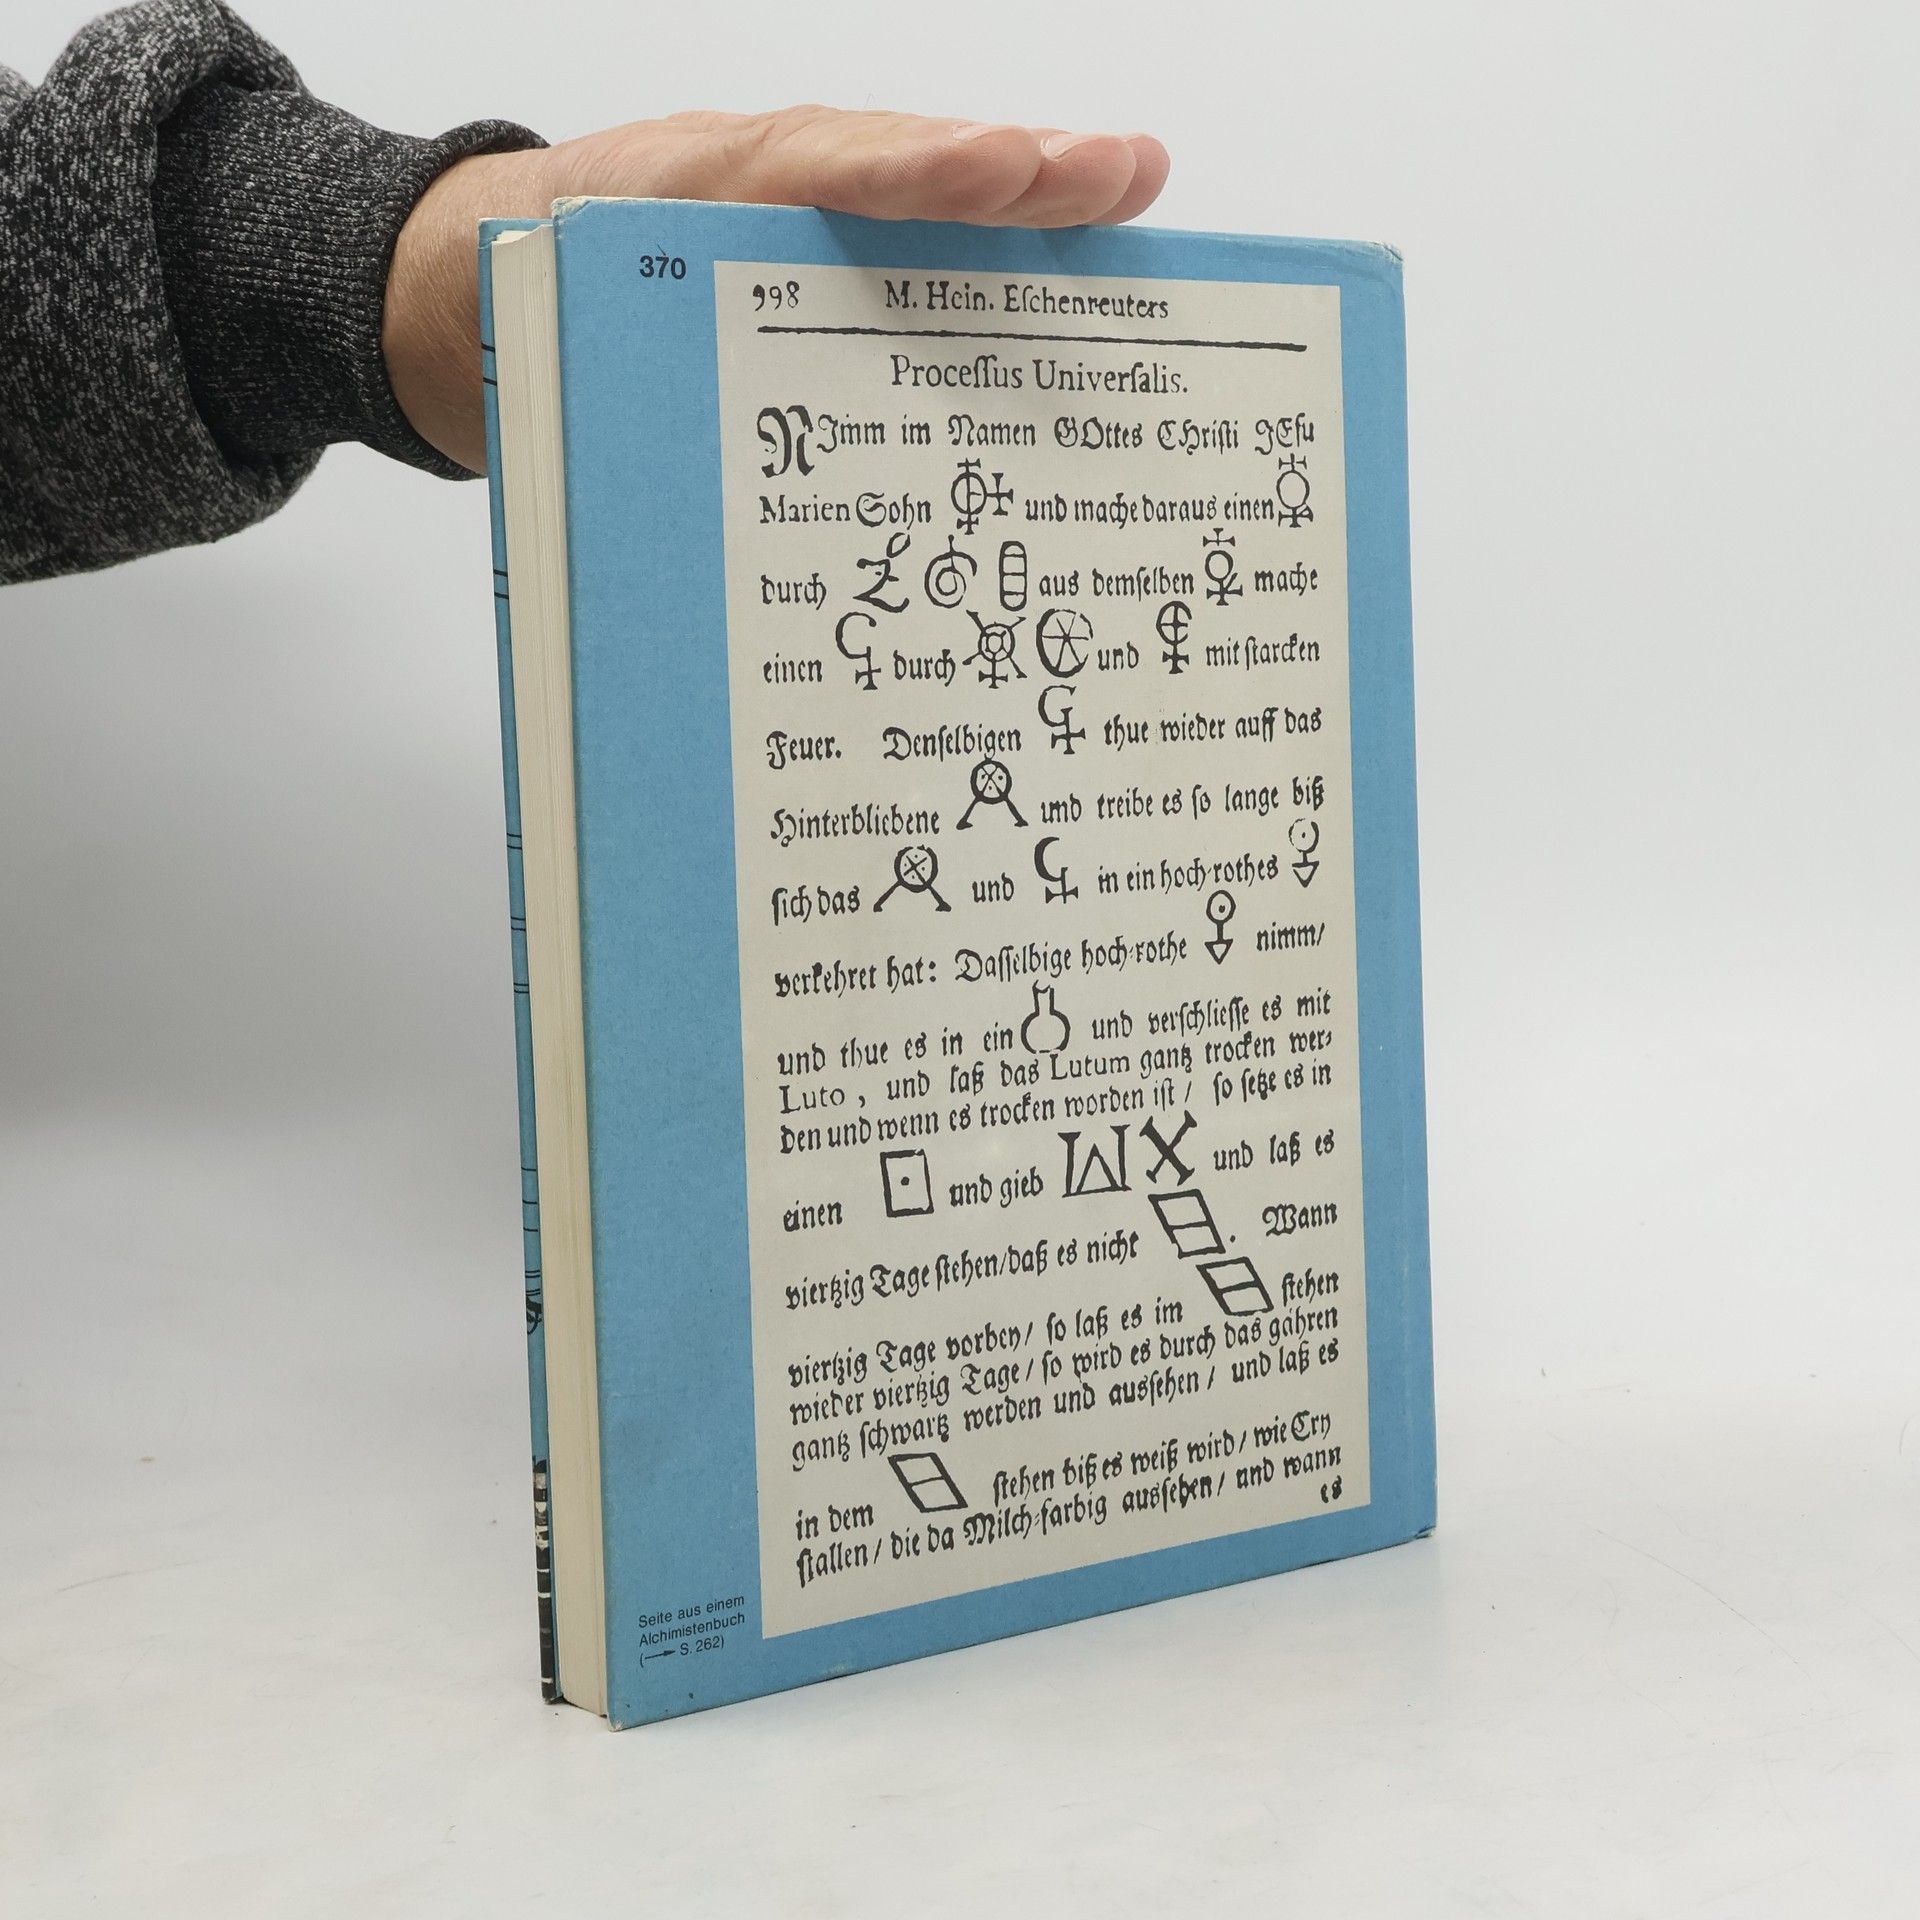 370
998 M. Hein. Eſchenreuters
Proceſſus Univerſalis.
NJmm im Namen GOttes CHriſti JEſu
Marien Sohn und mache daraus einen
durch aus demſelben mache
einen durch und mit ſtarcken
Feuer. Denſelbigen thue wieder auff das
Hinterbliebene und treibe es ſo lange biß
ſich das und in ein hoch-rothes
verkehret hat: Daſſelbige hoch-rothe nimm/
und thue es in ein und verſchlieſſe es mit
Luto, und laß das Lutum gantz trocken wer-
den und wenn es trocken worden iſt / ſo ſetze es in
einen und gieb und laß es
viertzig Tage ſtehen/daß es nicht . Wann
viertzig Tage vorbey/ ſo laß es im ſtehen
wieder viertzig Tage / ſo wird es durch das gähren
gantz ſchwartz werden und ausſehen / und laß es
in dem ſtehen biß es weiß wird / wie Cry
ſtallen / die da Milch-farbig ausſehen / und wann
es
Seite aus einem
Alchimistenbuch
(→ S. 262)